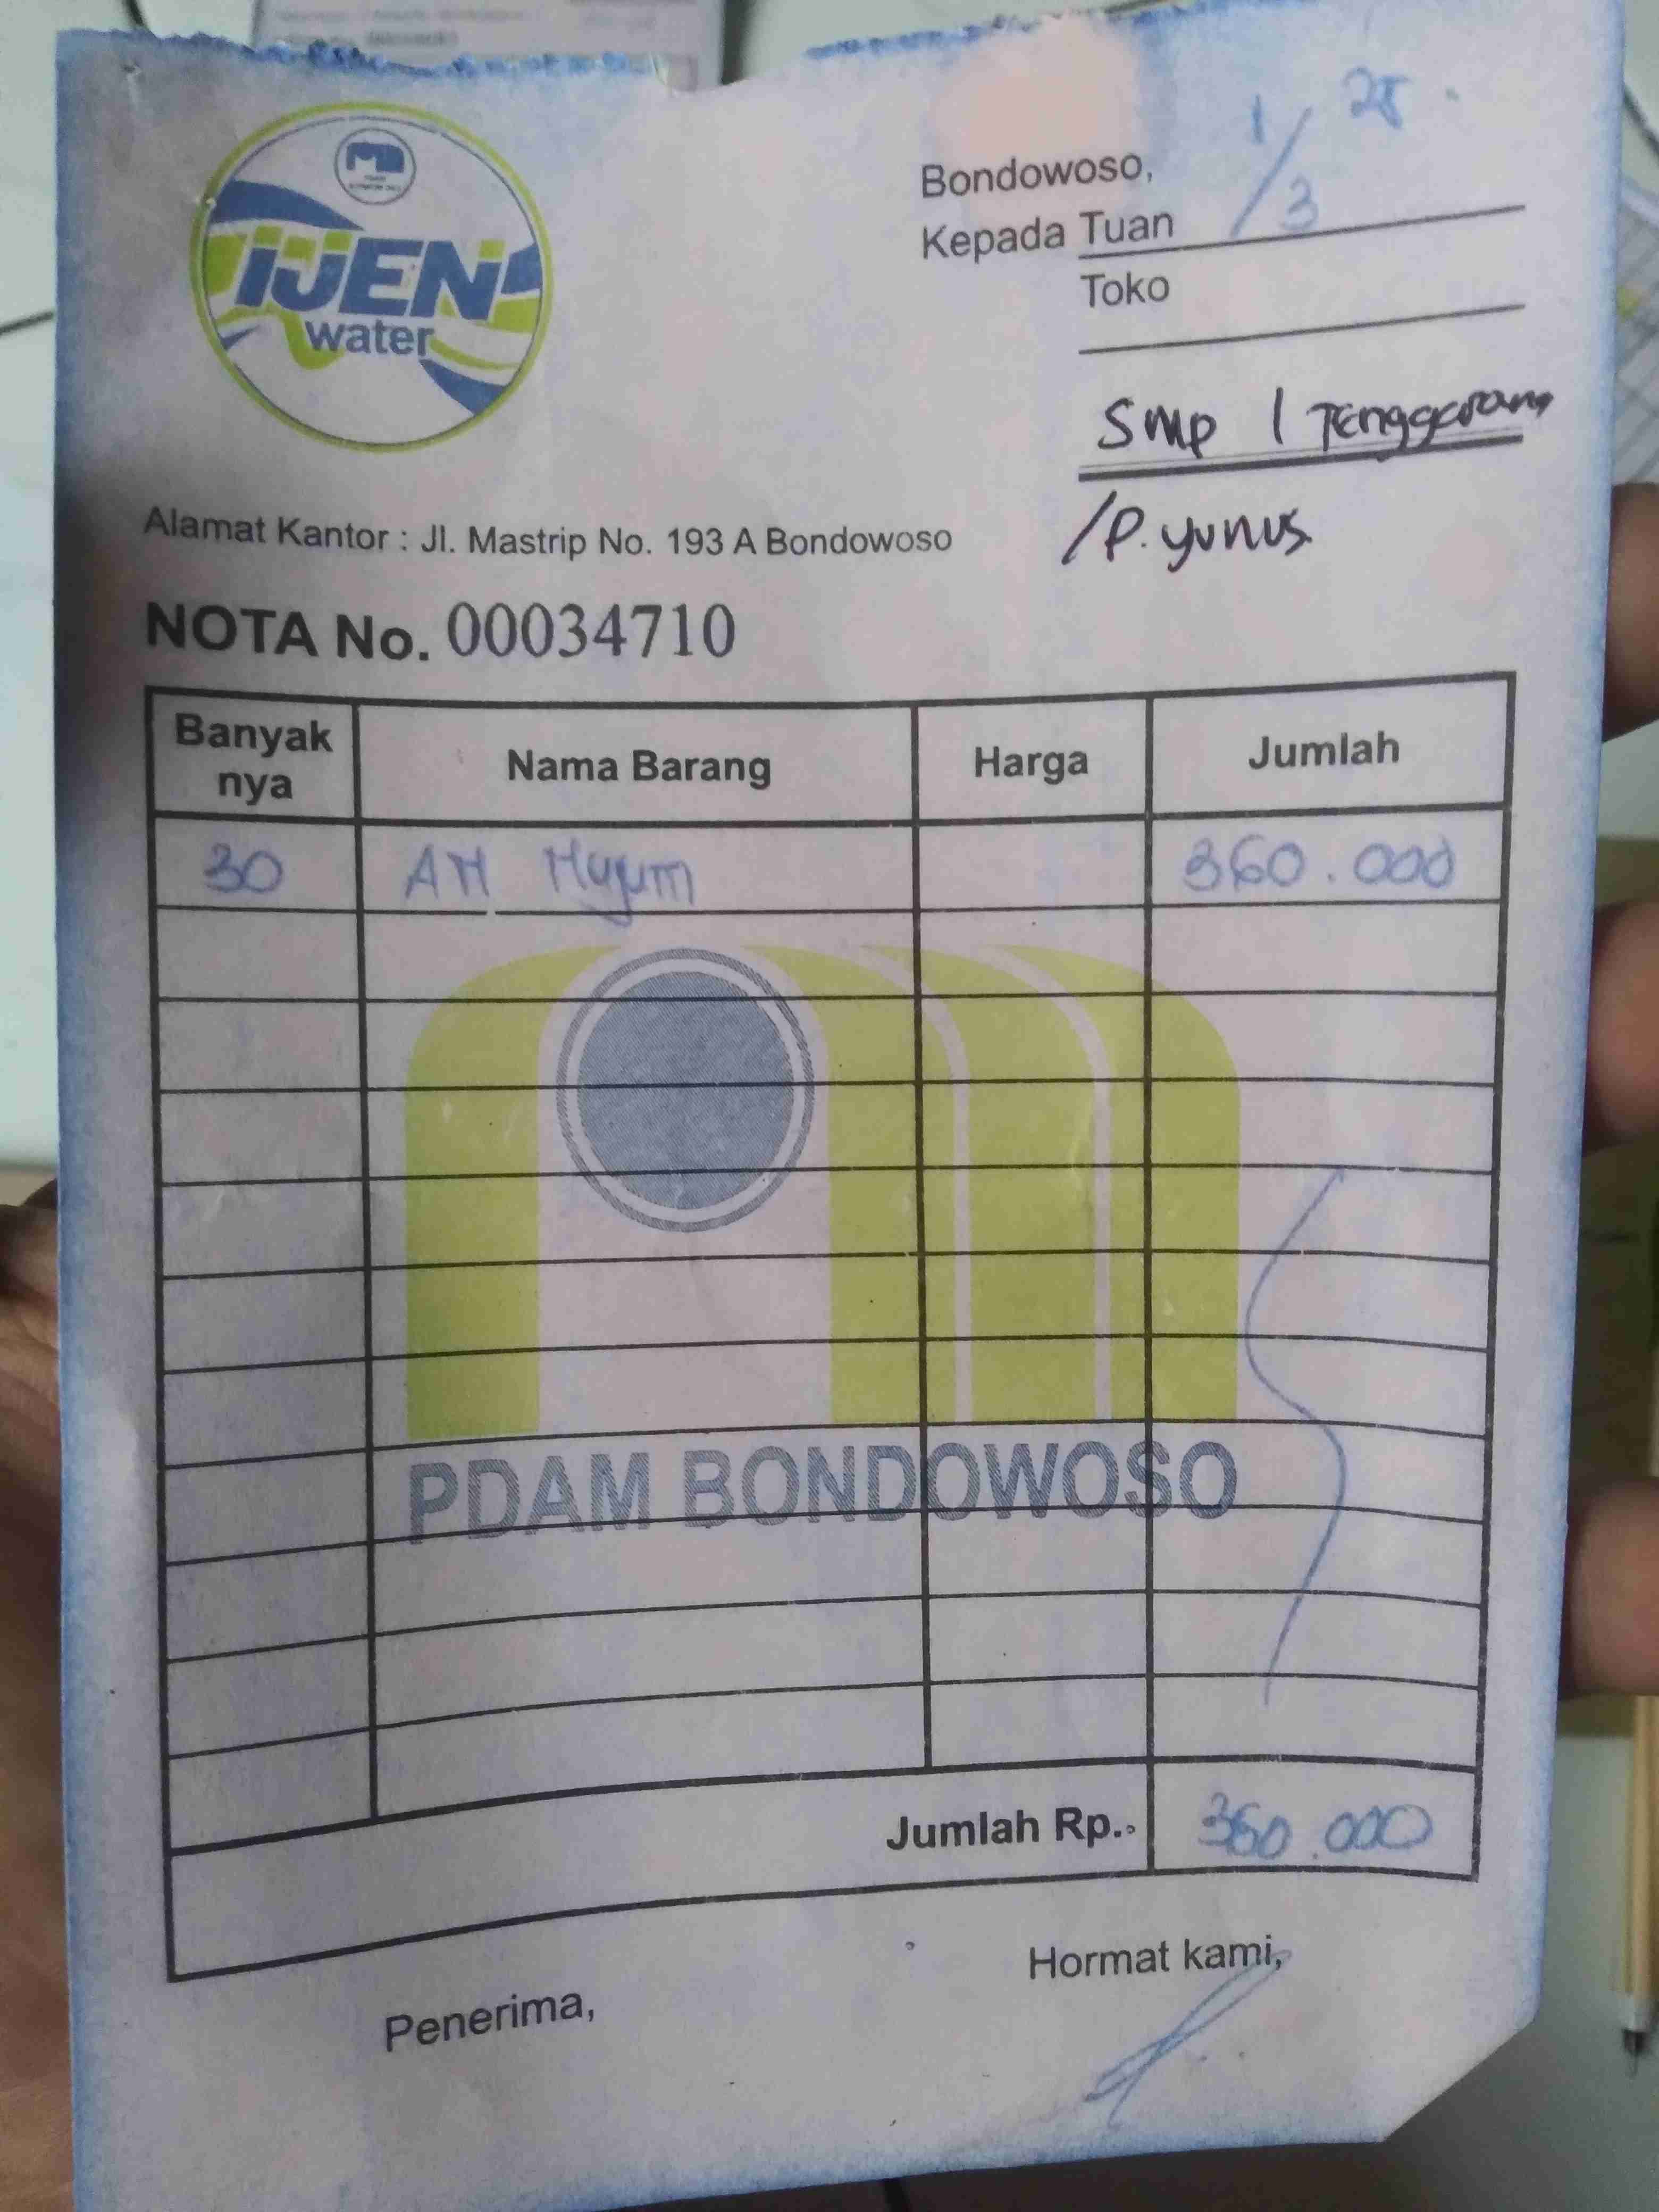 IJEN
water
Bondowoso, 1/3 25
Kepada Tuan
Toko
Smp 1 Tenggarang
/P. Yunus
Alamat Kantor : Jl. Mastrip No. 193 A Bondowoso
NOTA No. 00034710
Banyak nya Nama Barang Harga Jumlah
30 360.000
PDAM BONDOWOSO
Jumlah Rp. 360.000
Penerima, Hormat kami,